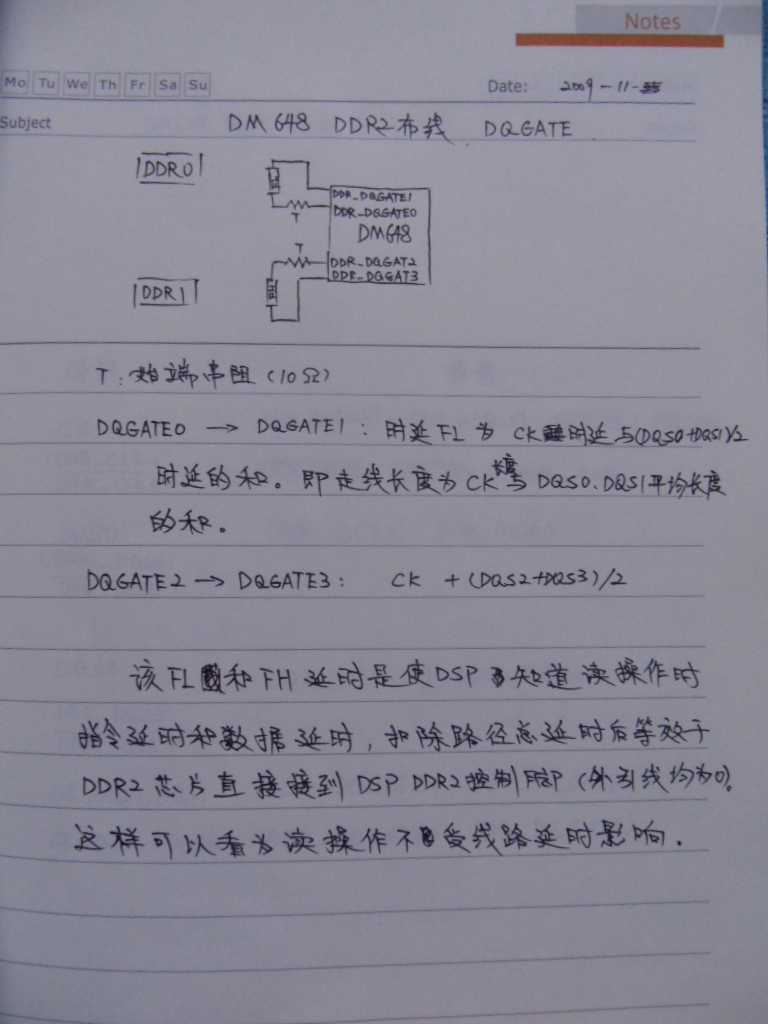 Notes
Mo Tu We Th Fr Sa Su
Date: 2009-11-
Subject DM648 DDR2布线 DQGATE
DDR0
DDR_DQGATE1
DDR_DQGATE0
T
DM648
T
DDR_DQGAT2
DDR_DQGAT3
DDR1
T: 始端串阻(10Ω)
DQGATE0 → DQGATE1: 时延FL为 CK时延与(DQS0+DQS1)/2
时延的和。即走线长度为CK长度与DQS0.DQS1平均长度
的和。
DQGATE2 → DQGATE3: CK + (DQS2+DQS3)/2
该FL和FH延时是使DSP知道读操作时
指令延时和数据延时,扣除路径总延时后等效于
DDR2芯片直接接到DSP DDR2控制脚(外引线均为0)。
这样可以看为读操作不受线路延时影响.